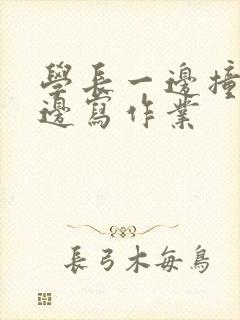 學長一邊撞
邊寫作業
長弓木每鳥